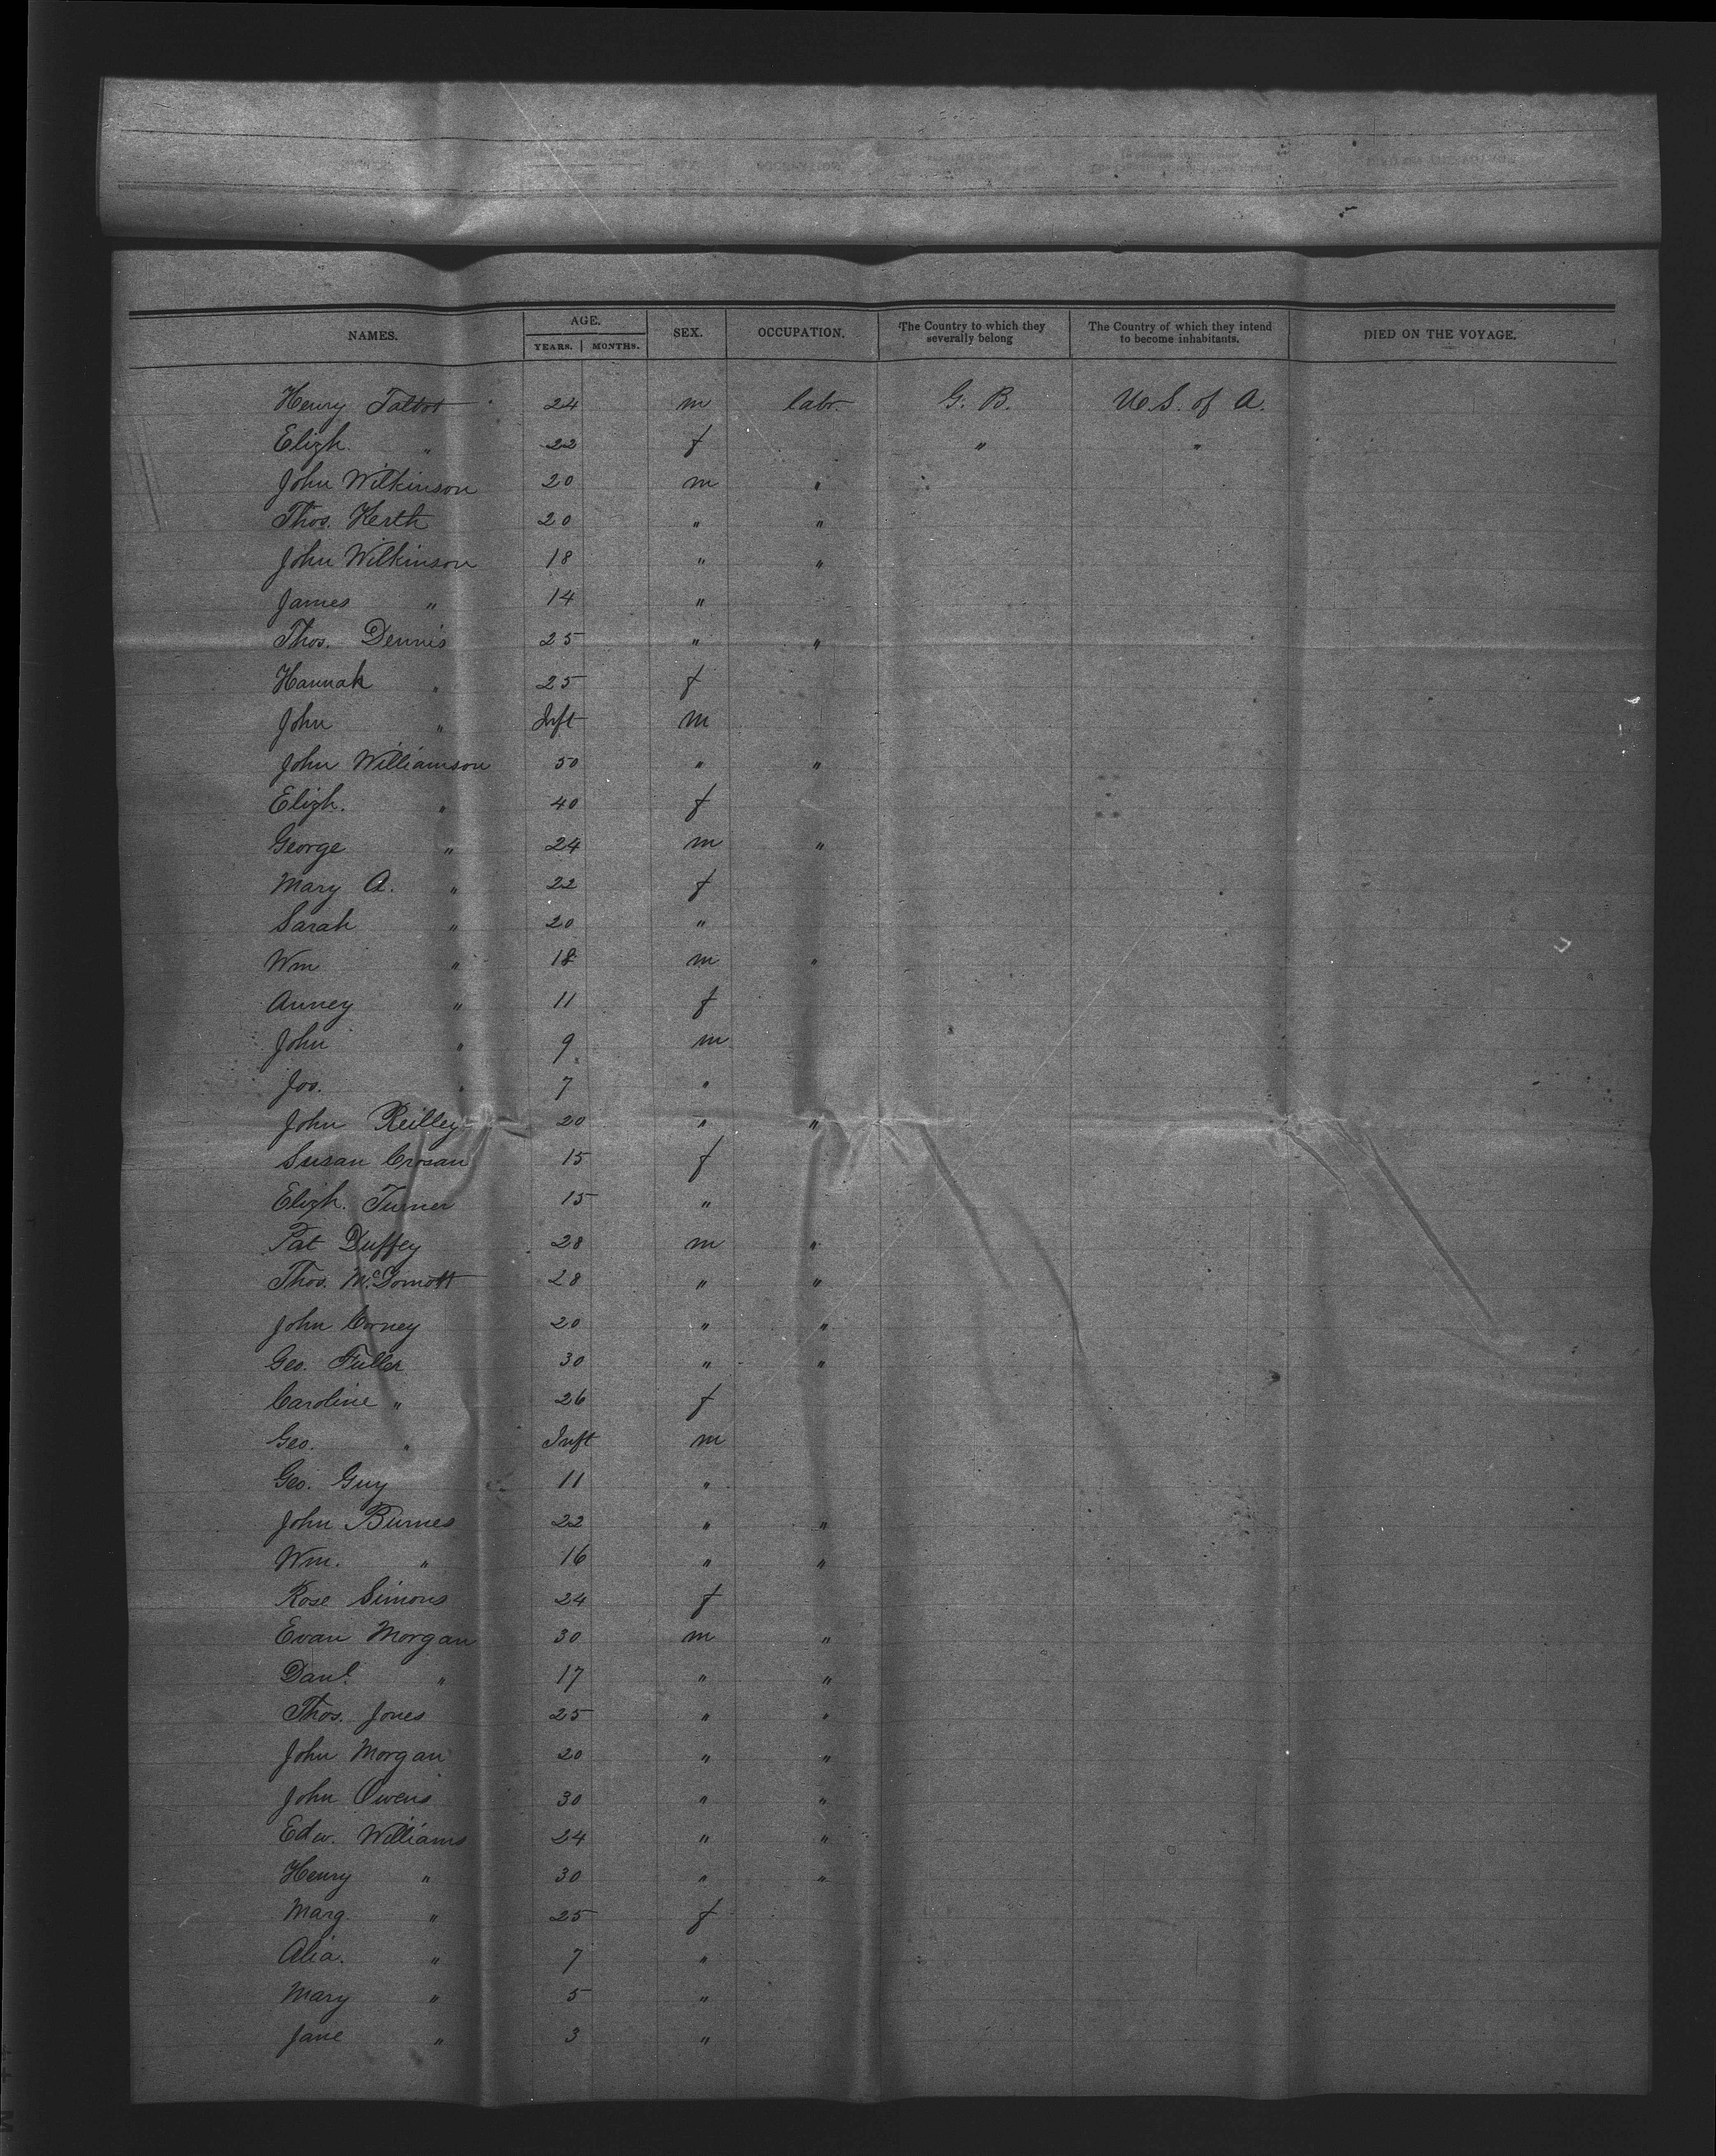 NAMES. AGE. SEX. OCCUPATION. The Country to which they severally belong The Country of which they intend to become inhabitants. DIED ON THE VOYAGE.
YEARS. MONTHS.
Henry Talbot 24 m labr. G. B. U. S. of A.
Elizh. " 22 f " "
John Wilkinson 20 m "
Thos. Kerth 20 " "
John Wilkinson 18 " "
James " 14 "
Thos. Dennis 25 " "
Hannah " 25 f
John " Inft m
John Williamson 50 " "
Elizh. " 40 f
George " 24 m "
Mary A. " 22 f
Sarah " 20 "
Wm " 18 m "
Anney " 11 f
John " 9 m
Jos. " 7 "
John Reilley 20 " "
Susan Crosan 15 f
Elizh. Turner 15 "
Pat Duffey 28 m "
Thos. 28 " "
John Corney 20 " "
Geo. Fuller 30 " "
Caroline " 26 f
Geo. " Inft m
Geo. Guy 11 "
John Burnes 22 " "
Wm. " 16 " "
Rose Simons 24 f
Evan Morgan 30 m "
Danl. " 17 " "
Thos. Jones 25 " "
John Morgan 20 " "
John Owens 30 " "
Edw. Williams 24 " "
Henry " 30 " "
Marg " 25 f
Alia. " 7 "
Mary " 5 "
Jane " 3 "